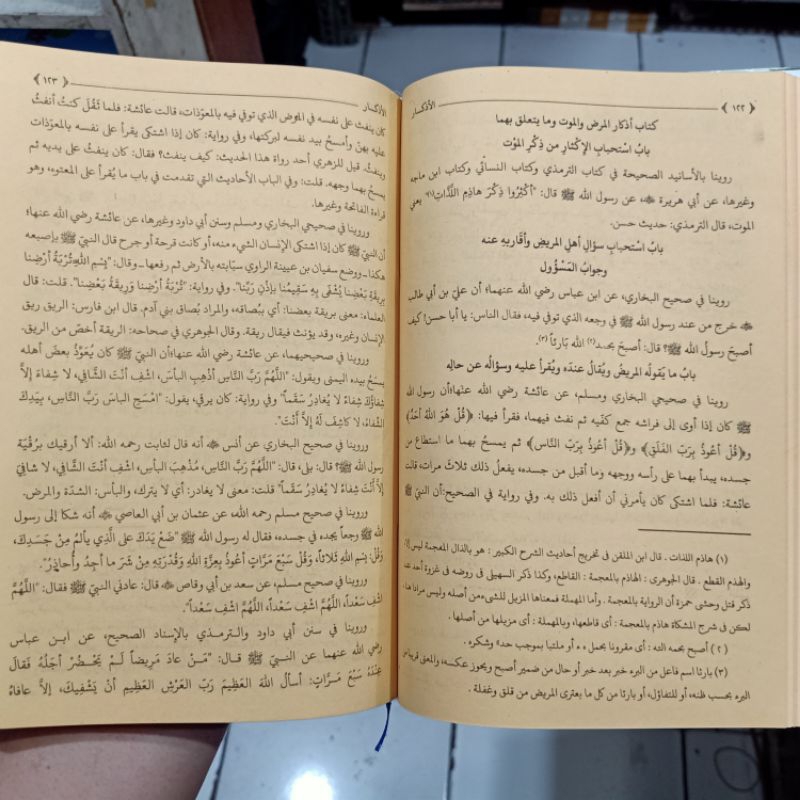 ﴿١٢٢﴾ الأذكـــار
كتاب أذكار المرض والموت وما يتعلق بهما
بابُ اسْتحبابِ الإِكْثارِ من ذِكْرِ المَوْت
روينا بالأسانيد الصحيحة في كتاب الترمذي وكتاب النسائي وكتاب ابن ماجه
وغيرها، عن أبي هريرة ﵁، عن رسول الله ﷺ قال: "أكْثِرُوا ذِكْرَ هاذِمِ اللَّذَّاتِ(١)" يعني
الموت، قال الترمذي: حديث حسن.
بابُ استحبابِ سؤالِ أهلِ المريضِ وأقاربِه عنه
وجوابُ المَسْؤُول
روينا في صحيح البخاري، عن ابن عباس رضي الله عنهما؛ أن عليّ بن أبي طالب
﵁ خرج من عند رسول الله ﷺ في وجعه الذي توفي فيه، فقال الناس: يا أبا حسن! كيف
أصبحَ رسولُ الله ﷺ؟ قال: أصبحَ بحمد(٢) الله بَارئاً.(٣)
بابُ ما يَقولُه المريضُ ويُقالُ عندَه ويُقرأ عليه وسؤالُه عن حالِه
روينا في صحيحي البخاري ومسلم، عن عائشة رضي الله عنها؛أن رسول الله
ﷺ كان إذا أوى إلى فراشه جمع كفّيه ثم نفث فيهما، فقرأ فيها: ﴿قُلْ هُوَ اللهُ أحَدٌ﴾
و﴿قُلْ أعُوذُ بِرَبِّ الفَلَقِ﴾ و﴿قُلْ أعُوذُ بِرَبّ النَّاس﴾ ثم يمسحُ بهما ما استطاع من
جسده، يبدأ بهما على رأسه ووجهه وما أقبل من جسده، يفعلُ ذلك ثلاثَ مرات؛ قالت
عائشة: فلما اشتكى كان يأمرني أن أفعل ذلك به. وفي رواية في الصحيح:أن النبيّ ﷺ
(١) هاذم اللذات . قال ابن الملقن في تخريج أحاديث الشرح الكبير : هو بالذال المعجمة ليس إلا
والهذم القطع . قال الجوهرى : الهاذم بالمعجمة : القاطع، وكذا ذكر السهيلى فى روضه فى غزوة أحد عند
ذكر قتل وحشى حمزة أن الرواية بالمعجمة . وأما المهملة فمعناها المزيل للشىء من أصله وليس مرادا هنا.
لكن فى شرح المشكاة هاذم بالمعجمة : أى قاطعها، وبالمهملة : أى مزيلها من أصلها .
(٢) أصبح بحمد الله : أى مقرونا بحمل ه ه أو ملتبا بموجب حده وشكره .
(٣) بارئا اسم فاعل من البره خبر بعد خبر أو حال من ضمير أصبح ويحوز عكسه، والمعنى قريبا من
البره بحسب ظنه، أو للتفاؤل، أو بارئا من كل ما يعترى المريض من قلق وغفلة .
الأذكـــار ﴿١٢٣﴾
كان ينفث على نفسه في المرض الذي توفي فيه بالمعوّذات، قالت عائشة: فلما ثَقُلَ كنتُ أنفثُ
عليه بهنّ وأمسحُ بيد نفسه لبركتها، وفي رواية: كان إذا اشتكى يقرأ على نفسه بالمعوّذات
وينفثُ. قيل للزهري أحد رواة هذا الحديث: كيف ينفث؟ فقال: كان ينفثُ على يديه ثم
يمسحُ بهما وجهه. قلت: وفي الباب الأحاديث التي تقدمت في باب ما يُقرأ على المعتوه، وهو
قراءة الفاتحة وغيرها.
وروينا في صحيحي البخاري ومسلم وسنن أبي داود وغيرها، عن عائشة رضي الله عنها؛
أن النبيّ ﷺ كان إذا اشتكى الإِنسان الشيء منه، أو كانت قرحة أو جرح قال النبيّ ﷺ بإصبعه
هكذا ـ ووضع سفيان بن عيينة الراوي سبّابته بالأرض ثم رفعها ـ وقال: "بِسْمِ اللهِ تُرْبَةُ أرْضِنا
بِرِيقَةِ بَعْضِنا يُشْفَى بِهِ سَقِيمُنا بإِذْنِ رَبِّنا". وفي رواية: "تُرْبَةُ أرْضِنا وَرِيقَةُ بَعْضِنا". قلت: قال
العلماء: معنى بريقة بعضنا: أي ببُصاقه، والمراد بُصاق بني آدم. قال ابن فارس: الريق ريق
الإِنسان وغيره، وقد يؤنث فيقال ريقة. وقال الجوهري في صحاحه: الريقة أخصّ من الريق.
وروينا في صحيحيهما، عن عائشة رضي الله عنها؛أن النبيّ ﷺ كان يُعَوِّذُ بعضَ أهله
يمسحُ بيده اليمنى ويقول: "اللَّهُمَّ رَبَّ النَّاسِ أذْهِبِ البأسَ، اشْفِ أنْتَ الشَّافِي، لا شِفاءَ إلاَّ
شِفاؤُكَ شِفاءً لا يُغادِرُ سَقَماً" وفي رواية: كان يرقي، يقول: "امْسَحِ الباسَ رَبَّ النَّاسِ، بِيَدِكَ
الشِّفاءُ، لا كاشِفَ لَهُ إلاَّ أَنْتَ".
وروينا في صحيح البخاري عن أنس ﵁ أنه قال لثابت رحمه الله: ألا أرقيك برُقْيَة
رسول الله ﷺ؟ قال: بلى، قال: "اللَّهُمَّ رَبَّ النَّاسِ، مُذْهِبَ البأسِ، اشْفِ أنْتَ الشَّافِي، لا شافِيَ
إلاَّ أَنْتَ شِفاءً لا يُغادِرُ سَقَماً" قلت: معنى لا يغادر: أي لا يترك، والبأس: الشدّة والمرض.
وروينا في صحيح مسلم رحمه الله، عن عثمان بن أبي العاصي ﵁ أنه شكا إلى رسول
الله ﷺ وجعاً يجده في جسده، فقال له رسول الله ﷺ "ضَعْ يَدَكَ على الَّذي يألَمُ مِنْ جَسَدِكَ،
وَقُلْ: بِسْمِ اللهِ ثَلاثاً، وَقُلْ سَبْعَ مَرَّاتٍ أعُوذُ بِعِزَّةِ اللهِ وَقُدْرَتِهِ مِنْ شَرّ ما أجِدُ وأُحاذِرُ".
وروينا في صحيح مسلم، عن سعد بن أبي وقاص ﵁ قال: عادني النبيّ ﷺ فقال: "اللَّهُمَّ
اشْفِ سَعْداً، اللَّهُمَّ اشْفِ سَعْداً، اللَّهُمَّ اشْفِ سَعْداً".
وروينا في سنن أبي داود والترمذي بالإِسناد الصحيح، عن ابن عباس
رضي الله عنهما عن النبيّ ﷺ قال: "مَنْ عادَ مَرِيضاً لَمْ يَحْضُرْ أجَلُهُ فَقالَ
عِنْدَهُ سَبْعَ مَرَّاتٍ: أسألُ اللهَ العَظِيمَ رَبَّ العَرْشِ العَظِيمِ أنْ يَشْفِيَكَ، إلاَّ عافاهُ